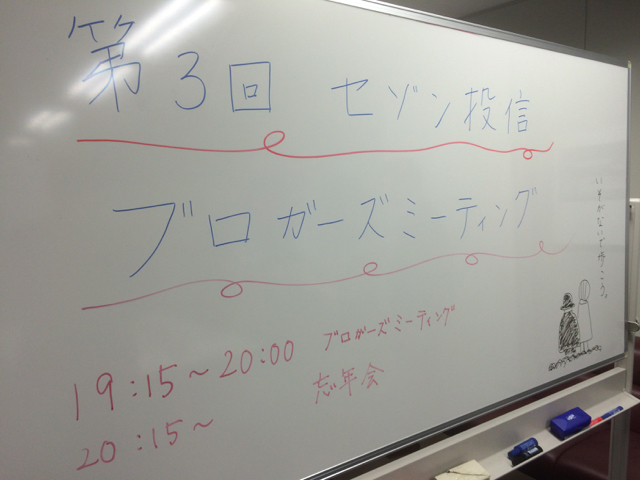 第3回 セゾン投信
ブロガーズミーティング
19:15～20:00 ブロガーズミーティング
20:15～ 忘年会
いそがないで歩こう。